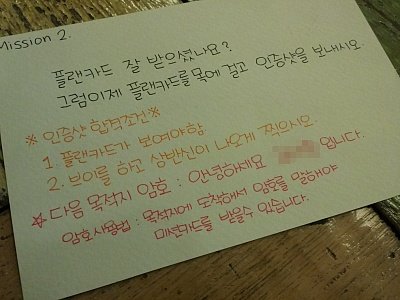 Mission 2.
플랜카드 잘 받으셨나요?
그럼이제 플랜카드를 목에 걸고 인증샷을 보내시오.
※ 인증샷 합격조건 ※
1. 플랜카드가 보여야함.
2. 브이를 하고 상반신이 나오게 찍으시오.
☆ 다음 목적지 암호 : 안녕하세요 입니다.
암호사용법 : 목적지에 도착해서 암호를 말해야
미션카드를 받을수 있습니다.